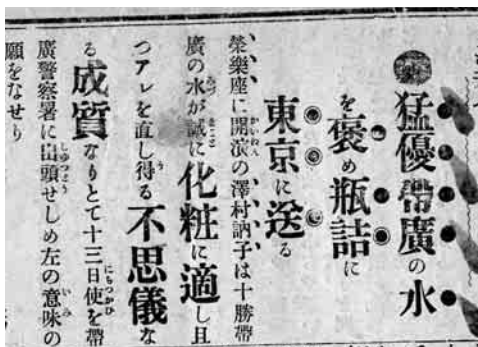 猛優帶廣の水
を褒め瓶詰に
東京に送る
榮樂座に開演の澤村訥子は十勝帶
廣の水が誠に化粧に適し且
つアレを直し得る不思儀な
る成質なりとて十三日使を帶
廣警察署に出頭せしめ左の意味の
願をなせり